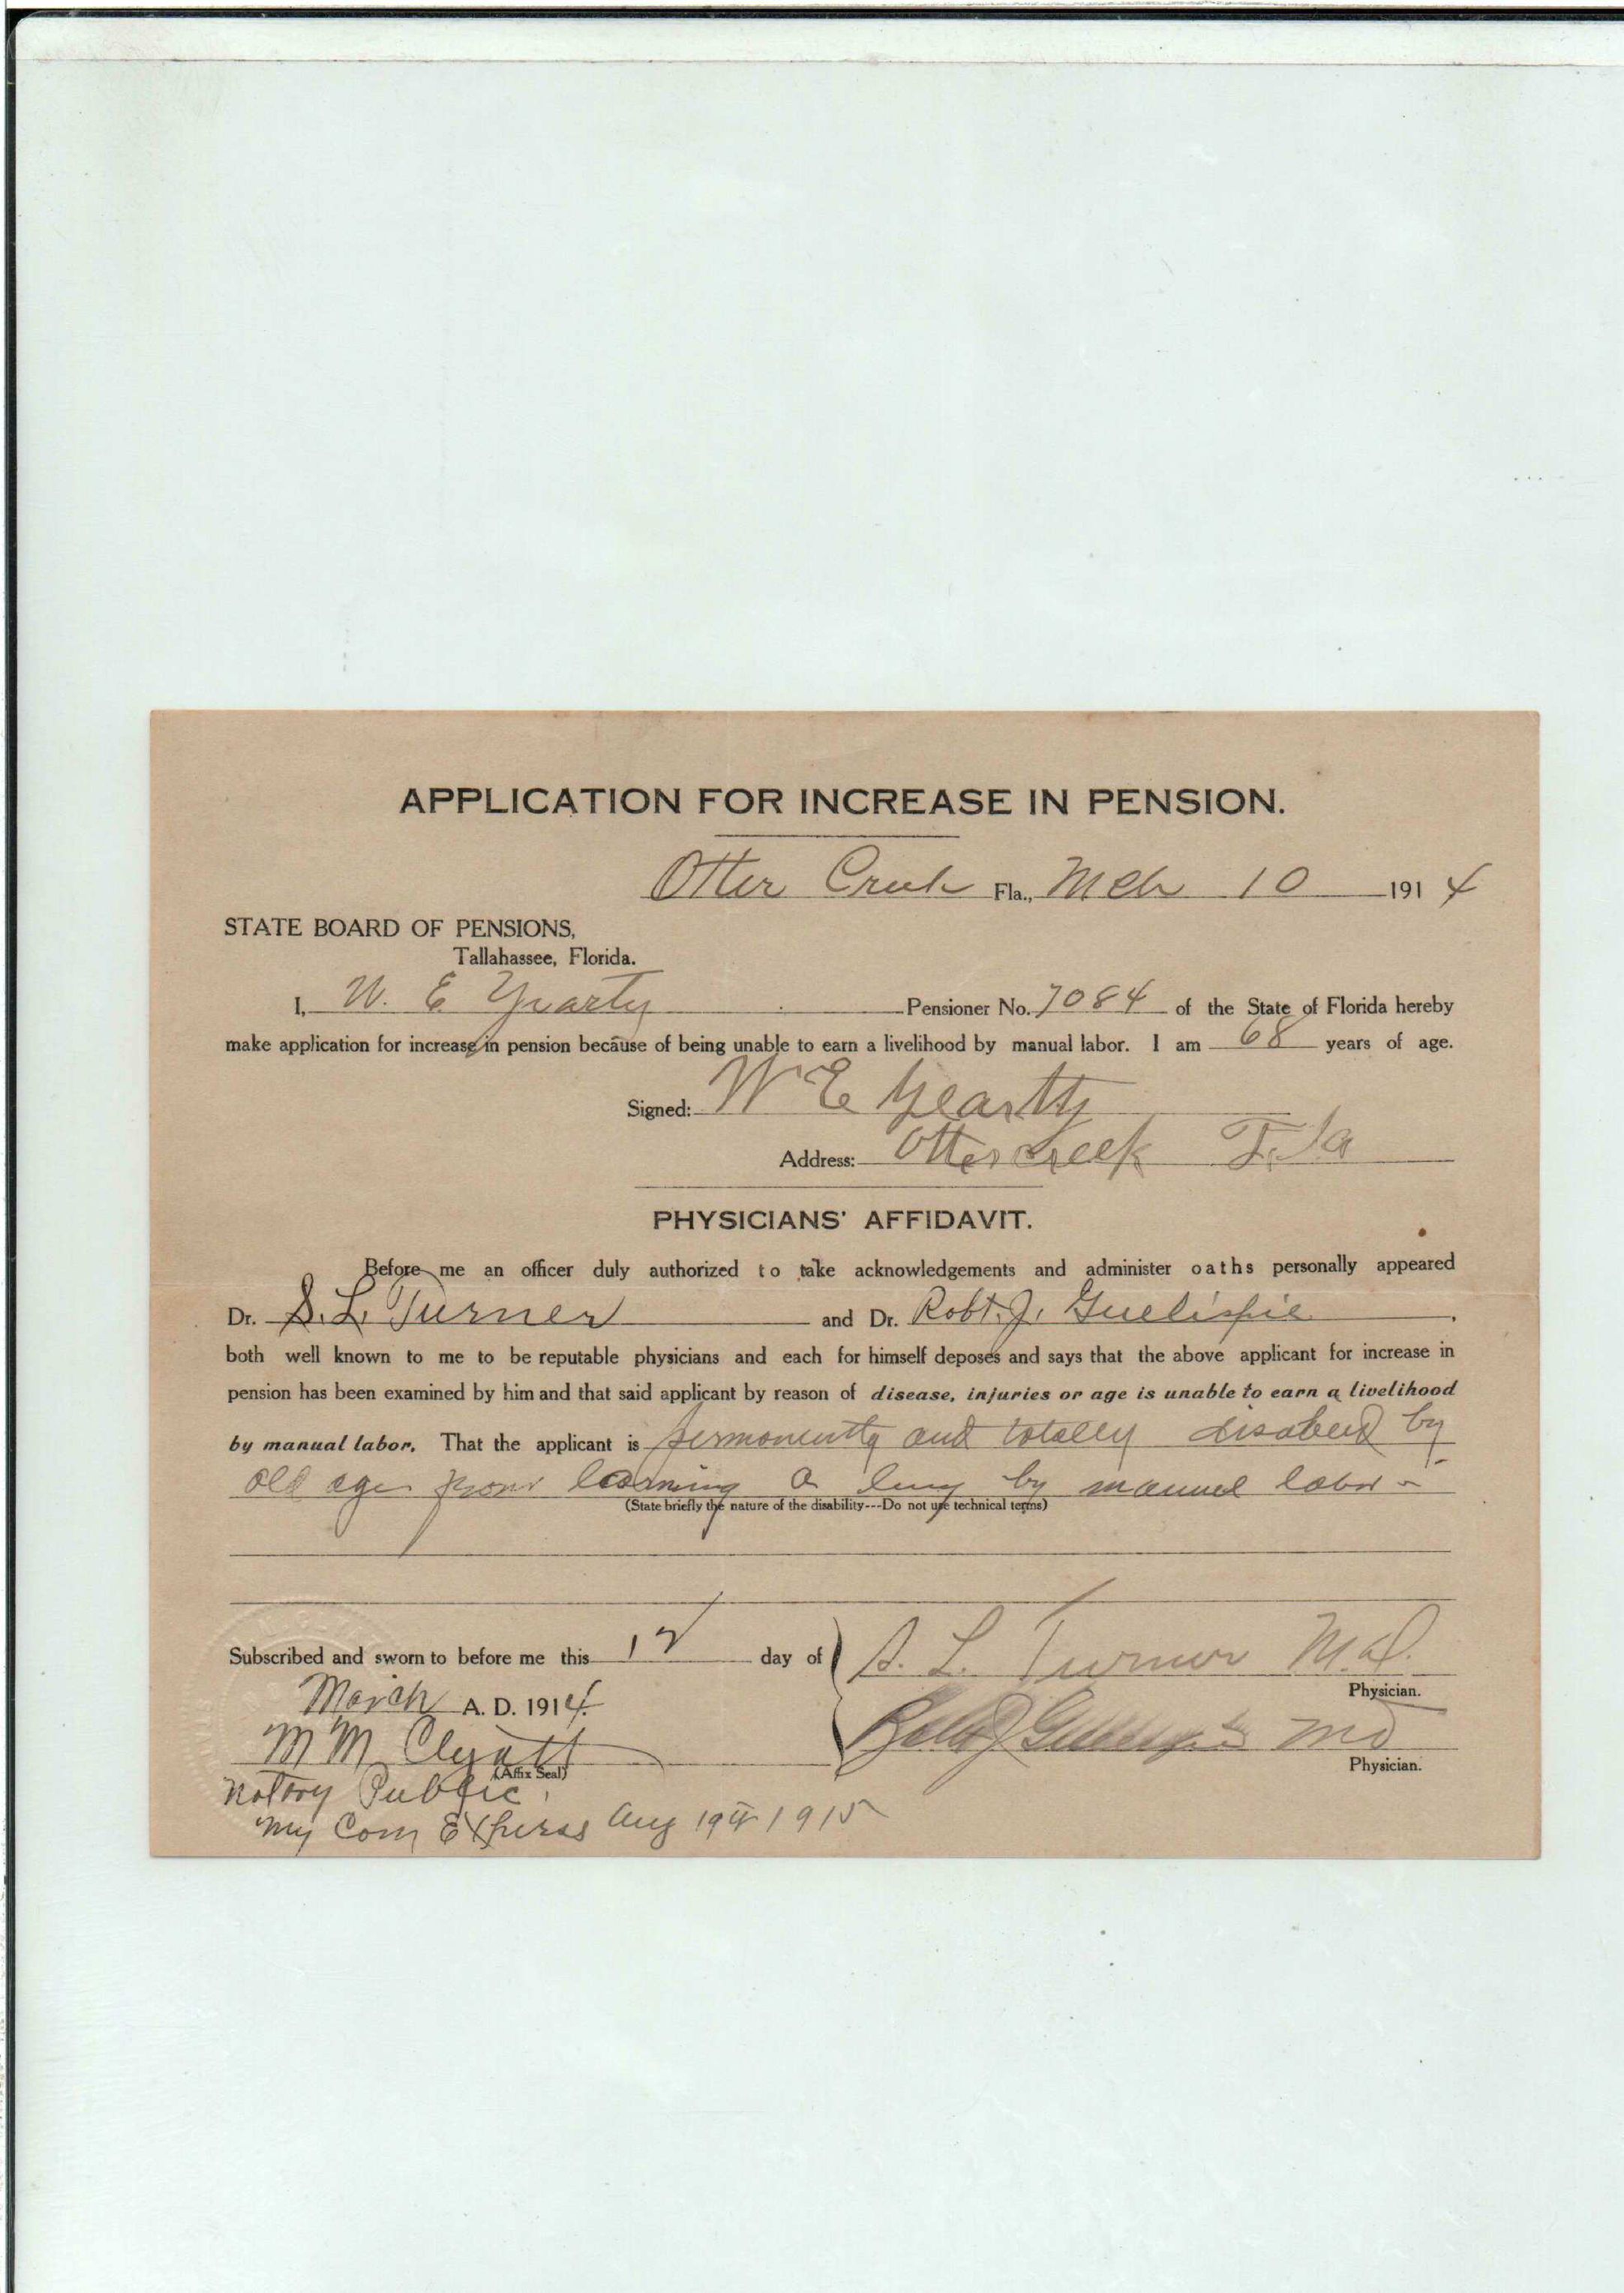 APPLICATION FOR INCREASE IN PENSION.
Otter Creek Fla., Mch 10 1914
STATE BOARD OF PENSIONS,
Tallahassee, Florida.
I, W. E. Yearty Pensioner No. 7084 of the State of Florida hereby
make application for increase in pension because of being unable to earn a livelihood by manual labor. I am 68 years of age.
Signed: W E Yearty
Address: Otter creek Fla
PHYSICIANS' AFFIDAVIT.
Before me an officer duly authorized to take acknowledgements and administer oaths personally appeared
Dr. S. L. Turner and Dr. Robt. J. Guelispie.
both well known to me to be reputable physicians and each for himself deposes and says that the above applicant for increase in
pension has been examined by him and that said applicant by reason of disease, injuries or age is unable to earn a livelihood
by manual labor. That the applicant is permonently and totally disabled by
old age from learning a living by manuel labor -
(State briefly the nature of the disability---Do not use technical terms)
Subscribed and sworn to before me this 12 day of
S. L. Turner M.D.
Physician.
March A. D. 1914.
Robt J M D
Physician.
M M Clyatt
(Affix Seal)
Notary Public
My Com Expires Aug 19th 1915